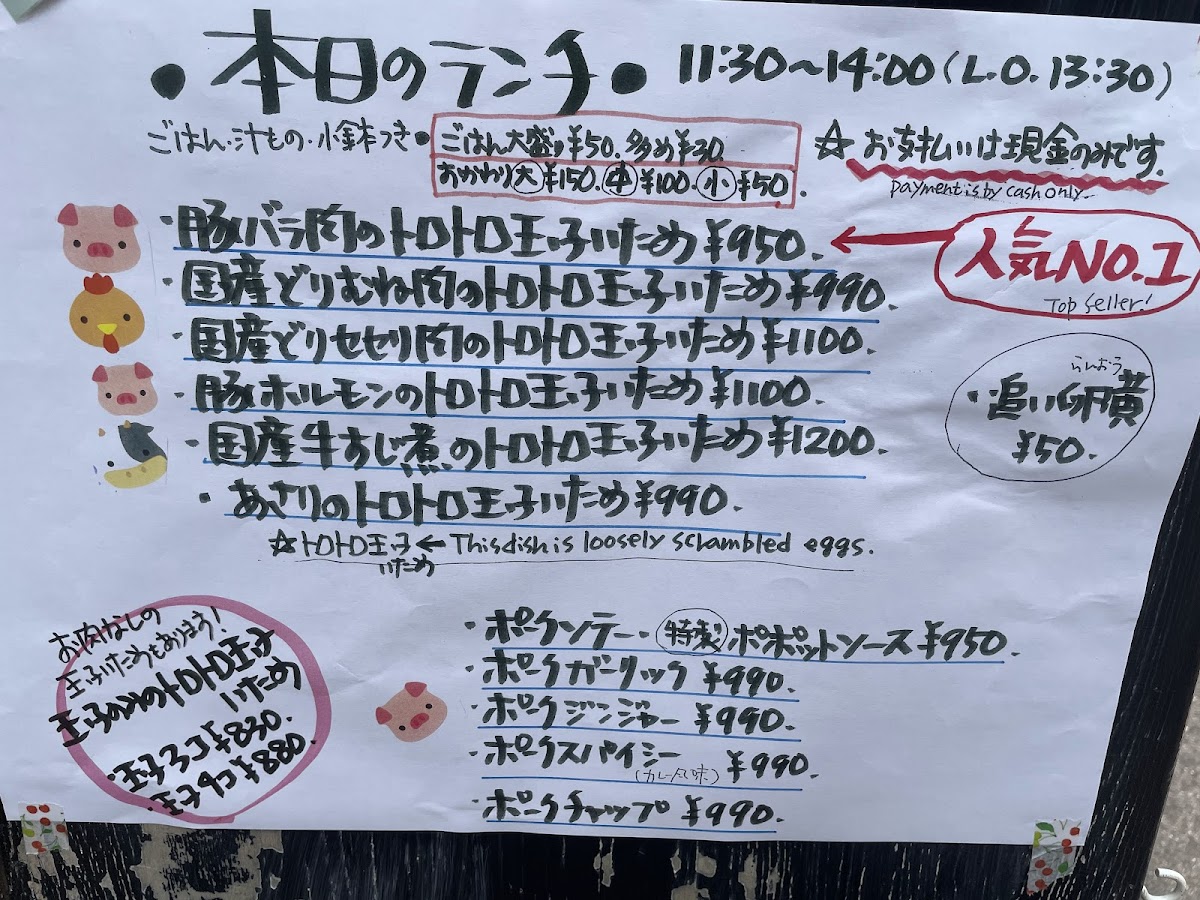 ・本日のランチ・ 11:30〜14:00(L.O.13:30)
ごはん・汁もの・小鉢つき・
ごはん大盛り¥50. 多め¥30.
おかわり大¥150. 中¥100. 小¥50.
☆お支払いは現金のみです.
payment is by cash only.
・豚バラ肉のトロトロ玉子いため¥950.
人気NO.1
Top seller!
・国産どりむね肉のトロトロ玉子いため¥990.
・国産どりセセリ肉のトロトロ玉子いため¥1100.
・豚ホルモンのトロトロ玉子いため¥1100.
・国産牛すじ煮のトロトロ玉子いため¥1200.
・あさりのトロトロ玉子いため¥990.
らんおう
・追い卵黄
¥50.
☆トロトロ玉子いため←This dish is loosely scrambled eggs.
お肉なしの
玉子いためもあります!
玉子のみのトロトロ玉子
いため
・玉子3コ¥830.
・玉子4コ¥880.
・ポークソテー・特製ポポットソース¥950.
・ポークガーリック¥990.
・ポークジンジャー¥990.
・ポークスパイシー¥990.
(カレー風味)
・ポークチャップ¥990.